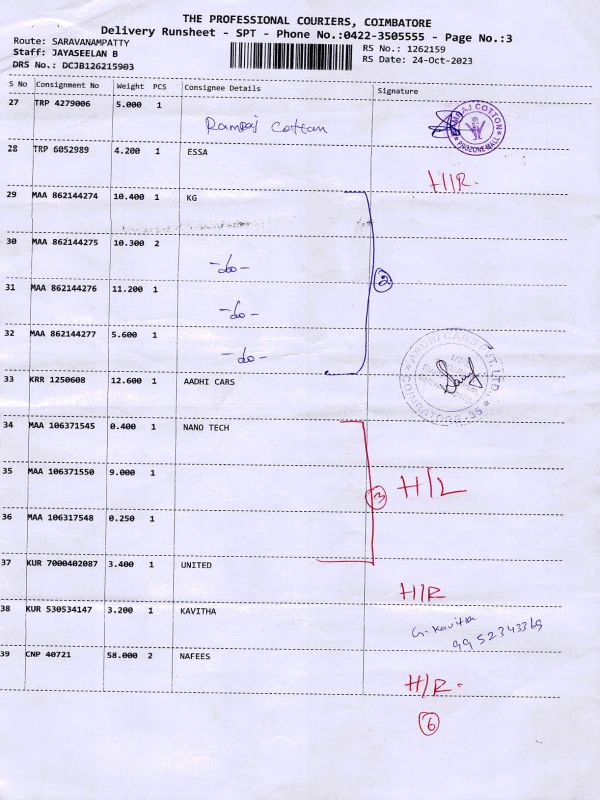 THE PROFESSIONAL COURIERS, COIMBATORE
Delivery Runsheet - SPT - Phone No.:0422-3505555 - Page No.:3
Route: SARAVANAMPATTY RS No.: 1262159
Staff: JAYASEELAN B RS Date: 24-Oct-2023
DRS No.: DCJB126215903
S No Consignment No Weight PCS Consignee Details Signature
27 TRP 4279006 5.000 1
Ramraj Cotton
RAMRAJ COTTON
PROZONE MALL
28 TRP 6052989 4.200 1 ESSA
H/R.
29 MAA 862144274 10.400 1 KG
30 MAA 862144275 10.300 2
-do-
2
31 MAA 862144276 11.200 1
-do-
32 MAA 862144277 5.600 1
-do-
33 KRR 1250608 12.600 1 AADHI CARS
CARS PVT. LTD.
COIMBATORE-35
34 MAA 106371545 0.400 1 NANO TECH
35 MAA 106371550 9.000 1
3 H/L
36 MAA 106317548 0.250 1
37 KUR 7000402087 3.400 1 UNITED
H/R
38 KUR 530534147 3.200 1 KAVITHA
G. Kavitha
9952343369
39 CNP 40721 58.000 2 NAFEES
H/R.
6